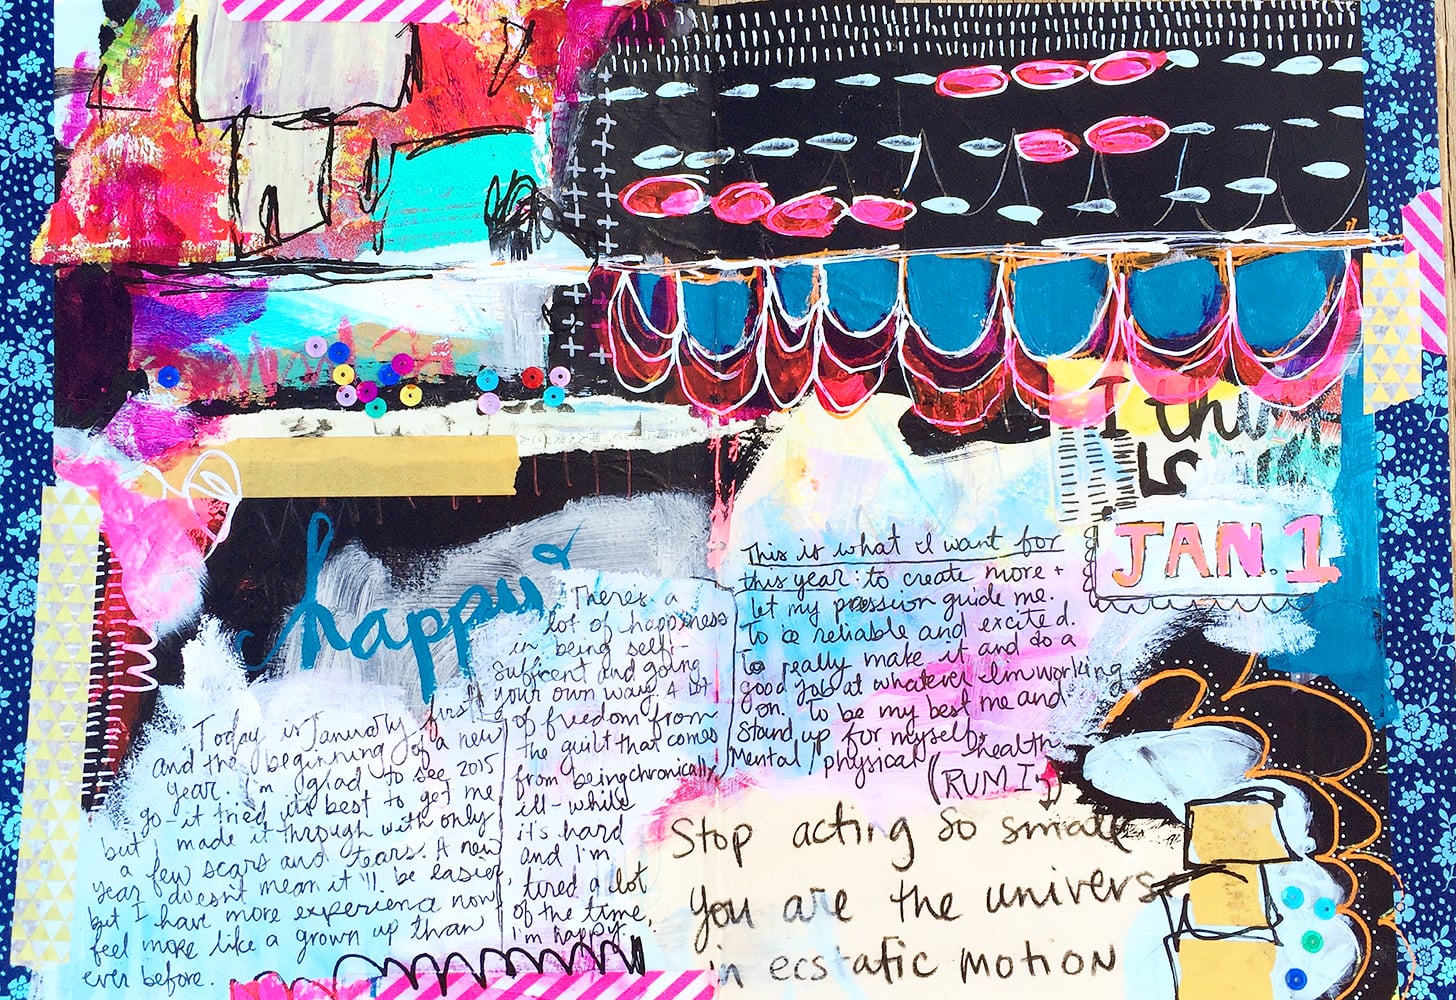 I thi
is
JAN. 1
happy
Today is January first
and the beginning of a new
year. I'm glad to see 2015
go - it tried its best to get me
but I made it through with only
a few scars and tears. A new
year doesn't mean it'll be easier,
but I have more experience now,
feel more like a grown up than
ever before.
There's a
lot of happiness
in being self-
sufficient and going
your own way. A lot
of freedom from
the guilt that comes
from being chronically
ill - while
it's hard
and I'm
tired a lot
of the time,
I'm happy.
This is what I want for
this year: to create more +
let my passion guide me.
To be reliable and excited.
To really make it and do a
good job at whatever I'm working
on. To be my best me and
stand up for myself.
Mental / physical health
(RUMI)
Stop acting so small
You are the univers
in ecstatic motion